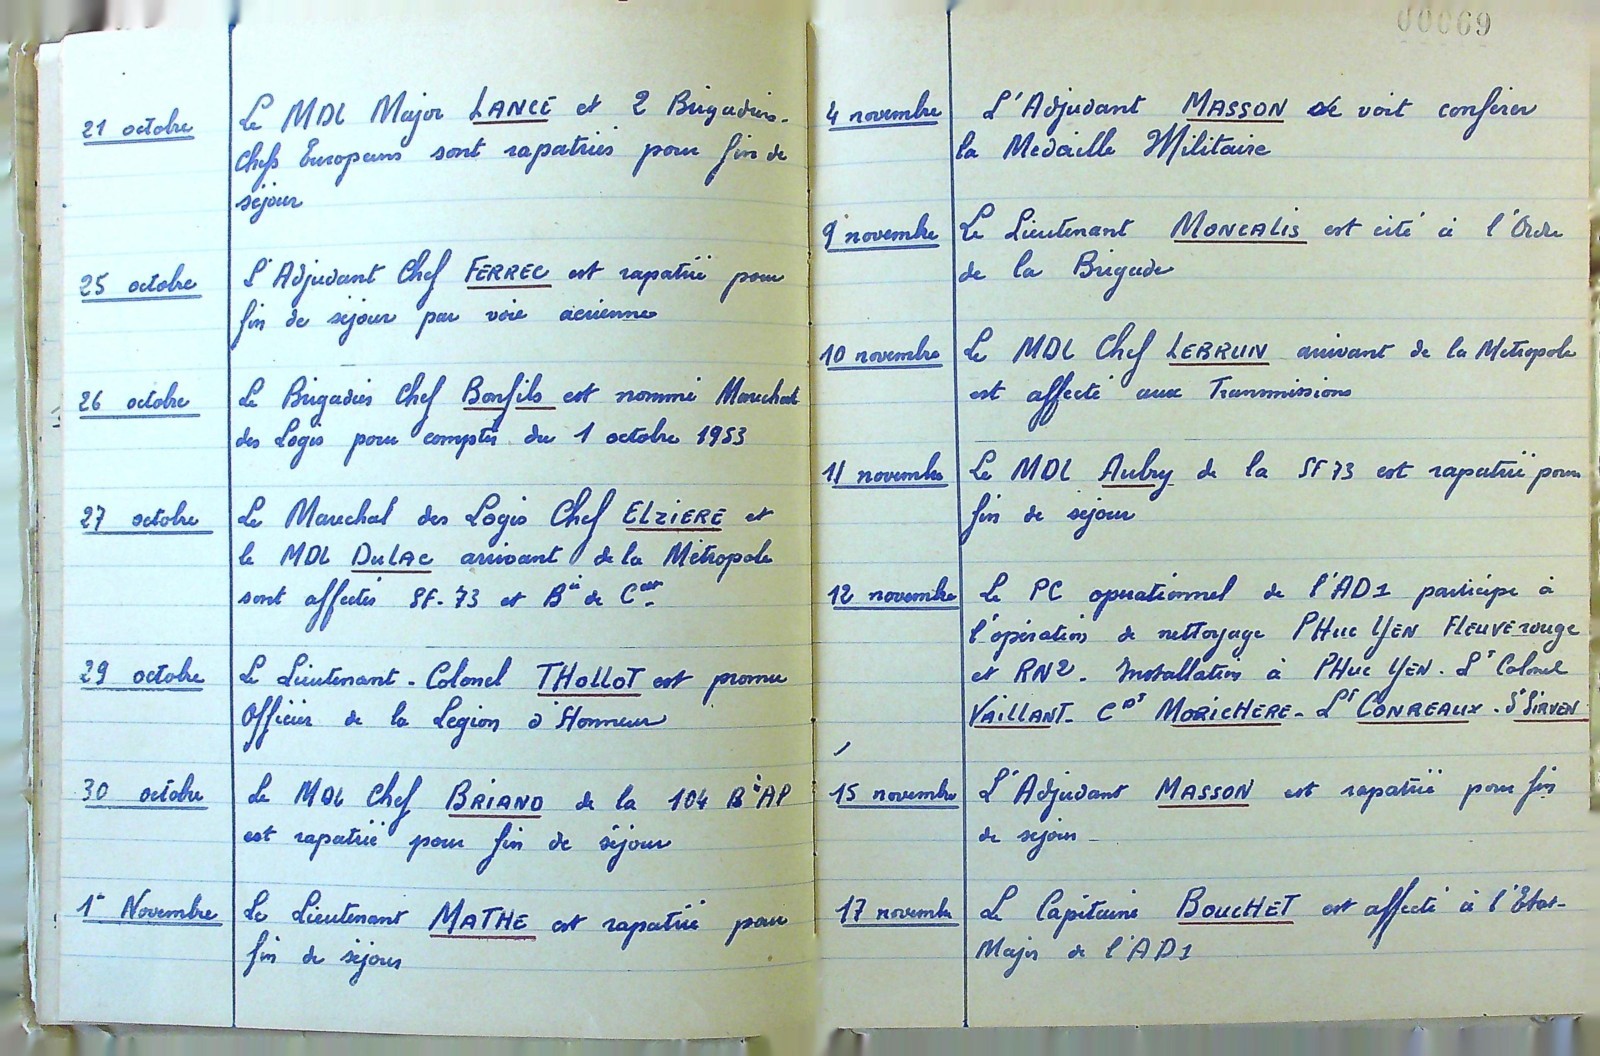 21 octobre
Le MDL Major LANCE et 2 Brigadiers-
Chefs Europeens sont rapatriés pour fin de
séjour
25 octobre
L'Adjudant Chef FERREC est rapatrié pour
fin de séjour par voie aerienne
26 octobre
Le Brigadier Chef Bonfils est nommé Marechal
des Logis pour compter du 1 octobre 1953
27 octobre
Le Marechal des Logis Chef ELZIERE et
le MDL DULAC arrivant de la Métropole
sont affectés SF-73 et Bie de Cat.
29 octobre
Le Lieutenant-Colonel THOLLOT est promu
Officier de la Legion d'Honneur
30 octobre
Le MDL Chef BRIAND de la 104 BiAP
est rapatrié pour fin de séjour
1er Novembre
Le Lieutenant MATHE est rapatrié pour
fin de séjour
00069
4 novembre
L'Adjudant MASSON se voit conférer
la Medaille Militaire
9 novembre
Le Lieutenant MONCALIS est cité à l'Ordre
de la Brigade
10 novembre
Le MDL Chef LEBRUN arrivant de la Metropole
est affecté aux Transmissions
11 novembre
Le MDL Aubry de la SF 73 est rapatrié pour
fin de séjour
12 novembre
Le PC operationnel de l'AD1 participe à
l'opération de nettoyage PHUC YEN FLEUVE rouge
et RN2. Installation à PHUC YEN. Lt Colonel
VAILLANT - Cdt MORICHERE - Lt CONREAUX - St SIRVEN
15 novembre
L'Adjudant MASSON est rapatrié pour fin
de séjour
17 novembre
Le Capitaine BOUCHET est affecté à l'Etat-
Major de l'AD1